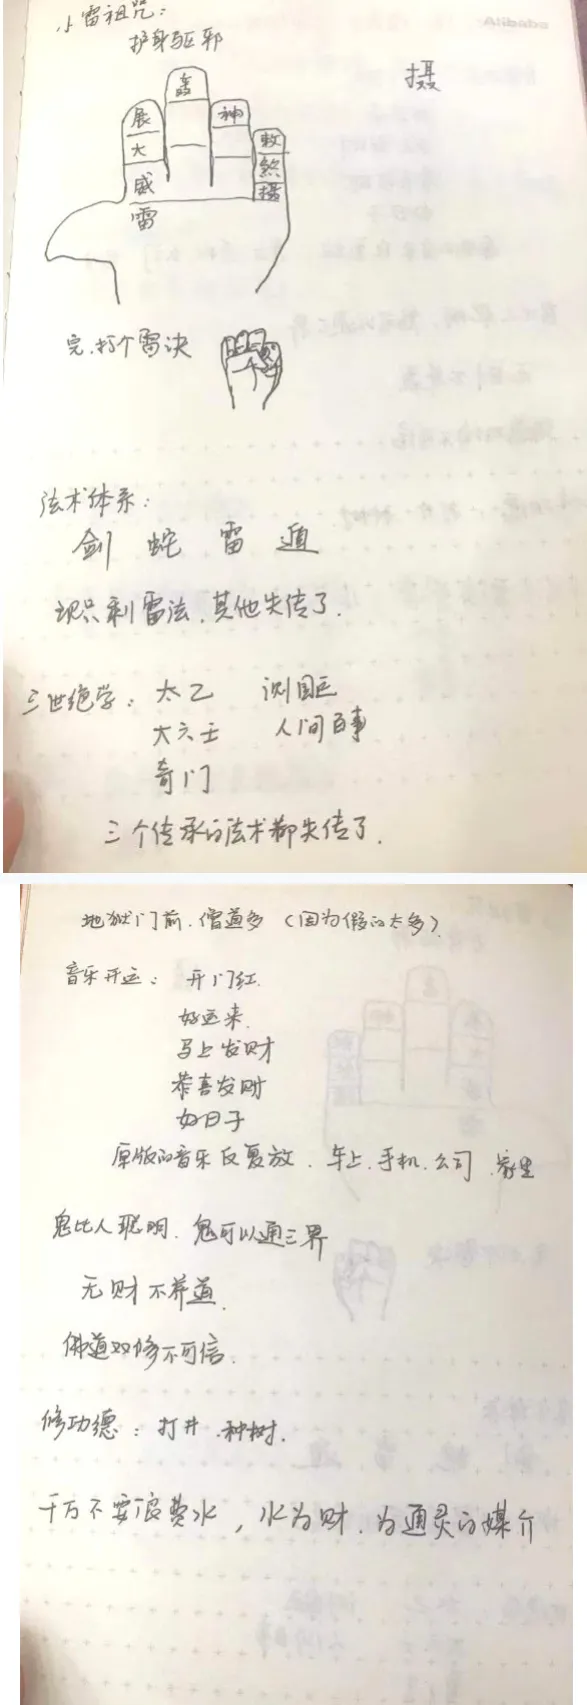 小雷祖咒:
护身驱邪
摄
轰
展
神
大
敕
煞
威
摄
雷
完.打个雷决
法术体系:
剑 蛇 雷 遁
现只剩雷法.其他失传了.
三世绝学: 太乙 测国运
大六壬 人间百事
奇门
三个传承的法术都失传了.
地狱门前.僧道多 (因为假的太多).
音乐开运: 开门红.
好运来.
马上发财
恭喜发财
好日子
原版的音乐反复放.车上.手机.公司.家里
鬼比人聪明.鬼可以通三界
无财不养道.
佛道双修不可信.
修功德: 打井.种树.
千万不要浪费水,水为财.为通灵的媒介